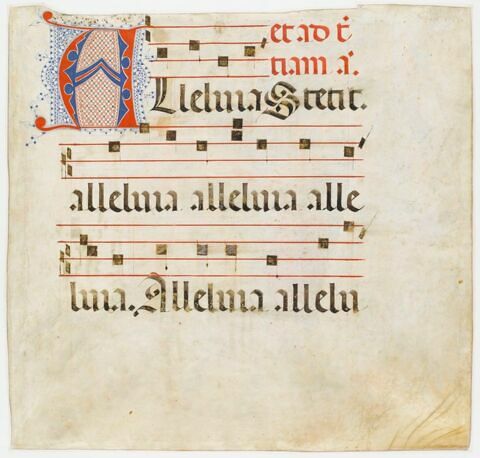 et ad t̄
tiam a.
Alleluia Stetit.
alleluia alleluia alle
luia. Alleluia allelu